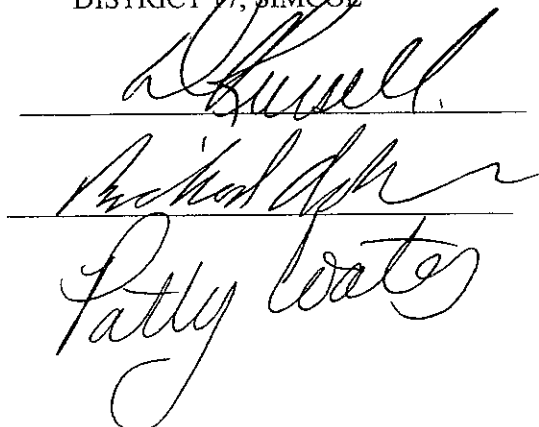 DISTRICT 17, SIMCOE
D Russell.
Richard
Patty Coates